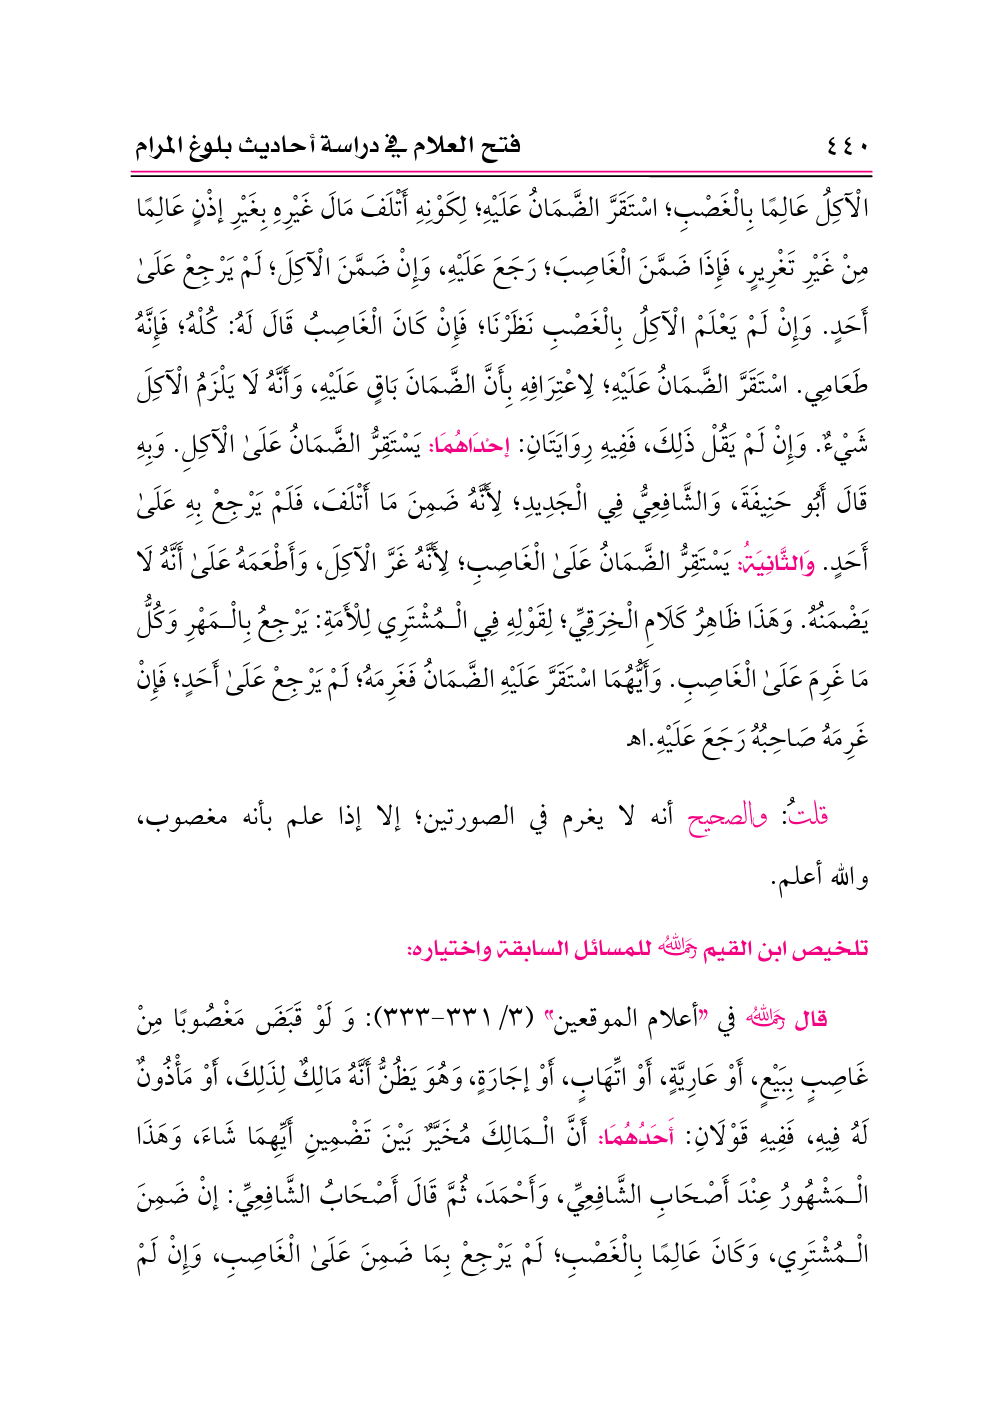 ٤٤٠ فتح العلام في دراسة أحاديث بلوغ المرام
الْآكِلُ عَالِمًا بِالْغَصْبِ؛ اسْتَقَرَّ الضَّمَانُ عَلَيْهِ؛ لِكَوْنِهِ أَتْلَفَ مَالَ غَيْرِهِ بِغَيْرِ إذْنٍ عَالِمًا
مِنْ غَيْرِ تَغْرِيرٍ، فَإِذَا ضَمَّنَ الْغَاصِبَ؛ رَجَعَ عَلَيْهِ، وَإِنْ ضَمَّنَ الْآكِلَ؛ لَمْ يَرْجِعْ عَلَىٰ
أَحَدٍ. وَإِنْ لَمْ يَعْلَمْ الْآكِلُ بِالْغَصْبِ نَظَرْنَا؛ فَإِنْ كَانَ الْغَاصِبُ قَالَ لَهُ: كُلْهُ؛ فَإِنَّهُ
طَعَامِي. اسْتَقَرَّ الضَّمَانُ عَلَيْهِ؛ لِاعْتِرَافِهِ بِأَنَّ الضَّمَانَ بَاقٍ عَلَيْهِ، وَأَنَّهُ لَا يَلْزَمُ الْآكِلَ
شَيْءٌ. وَإِنْ لَمْ يَقُلْ ذَلِكَ، فَفِيهِ رِوَايَتَانِ: إحْدَاهُمَا: يَسْتَقِرُّ الضَّمَانُ عَلَىٰ الْآكِلِ. وَبِهِ
قَالَ أَبُو حَنِيفَةَ، وَالشَّافِعِيُّ فِي الْجَدِيدِ؛ لِأَنَّهُ ضَمِنَ مَا أَتْلَفَ، فَلَمْ يَرْجِعْ بِهِ عَلَىٰ
أَحَدٍ. وَالثَّانِيَةُ: يَسْتَقِرُّ الضَّمَانُ عَلَىٰ الْغَاصِبِ؛ لِأَنَّهُ غَرَّ الْآكِلَ، وَأَطْعَمَهُ عَلَىٰ أَنَّهُ لَا
يَضْمَنُهُ. وَهَذَا ظَاهِرُ كَلَامِ الْخِرَقِيِّ؛ لِقَوْلِهِ فِي الْـمُشْتَرِي لِلْأَمَةِ: يَرْجِعُ بِالْـمَهْرِ وَكُلُّ
مَا غَرِمَ عَلَىٰ الْغَاصِبِ. وَأَيُّهُمَا اسْتَقَرَّ عَلَيْهِ الضَّمَانُ فَغَرِمَهُ؛ لَمْ يَرْجِعْ عَلَىٰ أَحَدٍ؛ فَإِنْ
غَرِمَهُ صَاحِبُهُ رَجَعَ عَلَيْهِ.اهـ
قلتُ: والصحيح أنه لا يغرم في الصورتين؛ إلا إذا علم بأنه مغصوب،
والله أعلم.
تلخيص ابن القيم رحمه الله للمسائل السابقة واختياره:
قال رحمه الله في "أعلام الموقعين" (٣/ ٣٣١-٣٣٣): وَ لَوْ قَبَضَ مَغْصُوبًا مِنْ
غَاصِبٍ بِبَيْعٍ، أَوْ عَارِيَّةٍ، أَوْ اتِّهَابٍ، أَوْ إجَارَةٍ، وَهُوَ يَظُنُّ أَنَّهُ مَالِكٌ لِذَلِكَ، أَوْ مَأْذُونٌ
لَهُ فِيهِ، فَفِيهِ قَوْلَانِ: أَحَدُهُمَا: أَنَّ الْـمَالِكَ مُخَيَّرٌ بَيْنَ تَضْمِينِ أَيِّهِمَا شَاءَ، وَهَذَا
الْـمَشْهُورُ عِنْدَ أَصْحَابِ الشَّافِعِيِّ، وَأَحْمَدَ، ثُمَّ قَالَ أَصْحَابُ الشَّافِعِيِّ: إنْ ضَمِنَ
الْـمُشْتَرِي، وَكَانَ عَالِمًا بِالْغَصْبِ؛ لَمْ يَرْجِعْ بِمَا ضَمِنَ عَلَىٰ الْغَاصِبِ، وَإِنْ لَمْ